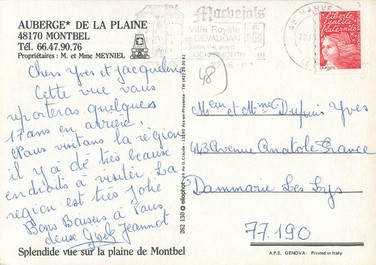 AUBERGE* DE LA PLAINE
48170 MONTBEL
Tél. 66.47.90.76
Propriétaires : M. et Mme MEYNIEL
Chers Yves et jacqueline
Cette vue vous
reporteras quelques
17 ans en arrière.
Nous visitons la région
il y a dé très beaux
endroits à visiter La
région est très jolie
Bons Baisers à Vous
deux Gisèle Jeannot
Splendide vue sur la plaine de Montbel
Marvejols
Ville Royale
du GEVAUDAN
48
262 130 eliophot
Mr et Mme Dupuis Yves
443 Avenue Anatole France
Dammarie Les Lys
77.190
A.P.E. GENOVA - Printed in Italy